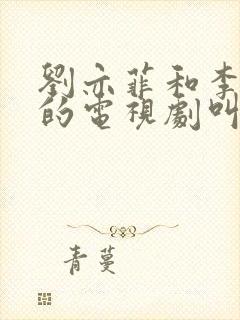 劉亦菲和李
的電視劇叫
青蔓